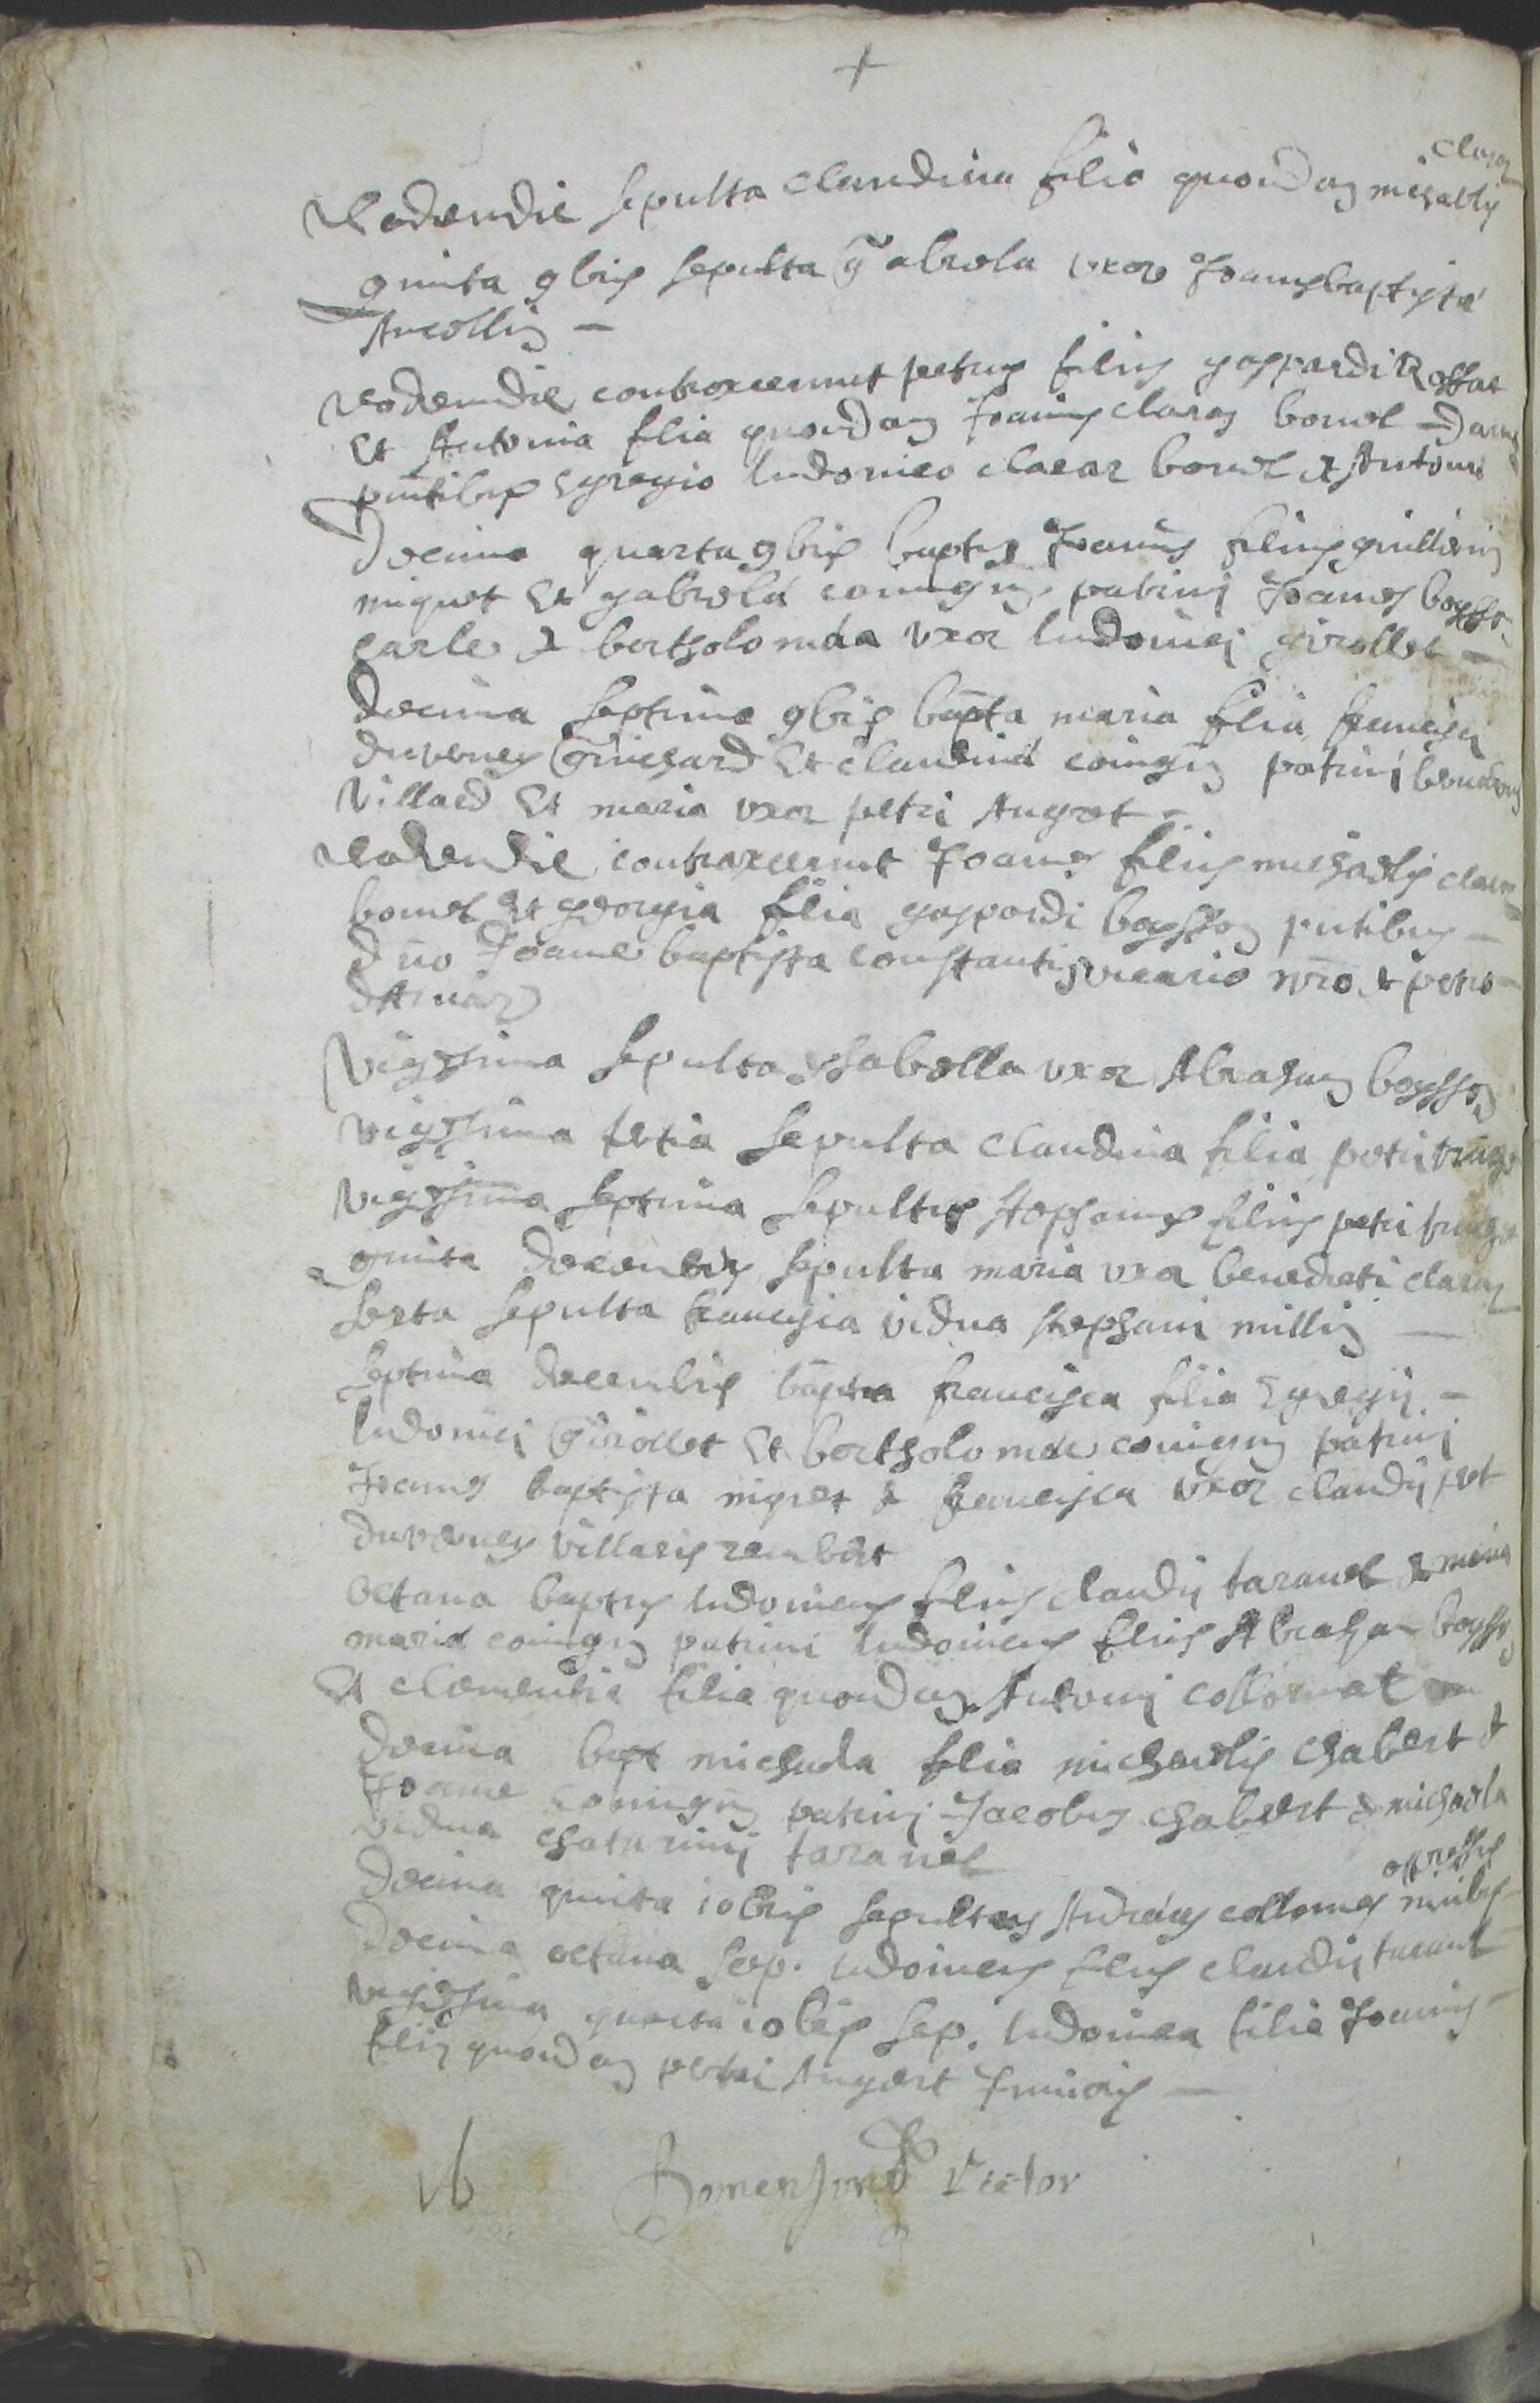 +
claraz
Eademdie sepulta claudina filia quondam michaelis
quinta 9bris sepulta gabrela uxor Joannisbaptiste
Ancellin -
eademdie contraxerunt petrus filius gaspardi Rosset
Et Antonia filia quondam Joannis claraz bonet -
pntibus Egregio ludovico claraz bonet & Antonio
Decima quarta 9bris baptus Joannes filius guillermi
miguet Et gabrela coniugum patrini Joannes boysson
carle & bertholomea uxor ludovici girollet -
decima septima 9bris bapta maria filia francisci
duverney Guichard Et claudina coniugum patrini benedictus
villard Et maria uxor petri Anget -
eademdie contraxerunt Joannes filius michaelis claraz
bonet Et georgia filia gaspardi boysson pntibus -
dno Joanne baptista constantin vicario nro & petro -
vigessima sepulta ysabella uxor Abraham boysson
vigessima tertia sepulta claudina filia petri
vigessima septima sepultus stephanus filius petri
quinta decembris sepulta maria uxor benedicti claraz
sexta sepulta francisca vidua stephani millin -
septima decembris bapta francisca filia Egregii -
ludovici girollet Et bertholomee coniugum patrini
Joannes baptista miguet & francisca uxor claudii
duverney villaris
octava baptus ludovicus filius claudii tavanel &
maria coniugum patrini ludovicus filius Abraham boysson
Et clementia filia quondam Antonii collomat
decima bapt michaela filia michaelis chabert &
Joanne coniugum patrini Jacobus chabert & michaela
vidua tavanel
oppressus
decima quinta 10bris sepultus Andreas collomb nivibus
decima octava sep. ludovicus filius claudii tavanel
vigessima quarta 10bris sep. ludovica filia Joannis -
filii quondam petri Angert Junioris -